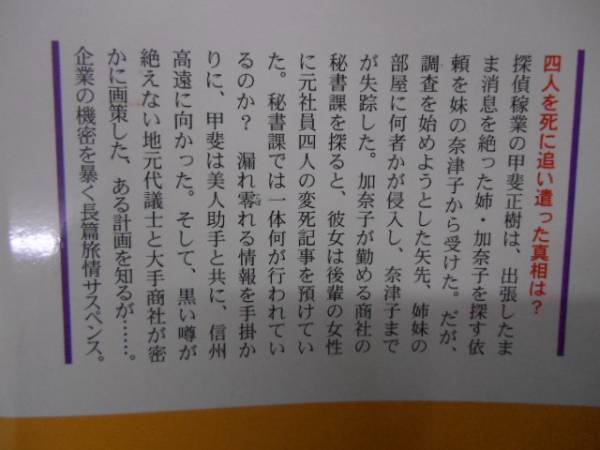 四人を死に追い遣った真相は？
探偵稼業の甲斐正樹は、出張したま
ま消息を絶った姉・加奈子を探す依
頼を妹の奈津子から受けた。だが、
調査を始めようとした矢先、姉妹の
部屋に何者かが侵入し、奈津子まで
が失踪した。加奈子が勤める商社の
秘書課を探ると、彼女は後輩の女性
に元社員四人の変死記事を預けてい
た。秘書課では一体何が行われてい
るのか？　漏れ零れる情報を手掛か
りに、甲斐は美人助手と共に、信州
高遠に向かった。そして、黒い噂が
絶えない地元代議士と大手商社が密
かに画策した、ある計画を知るが……。
企業の機密を暴く長篇旅情サスペンス。